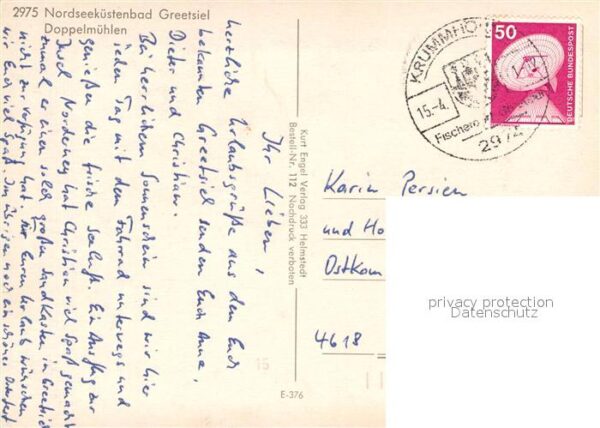 2975 Nordseeküstenbad Greetsiel
Doppelmühlen
Ihr Lieben,
herzliche Urlaubsgrüße aus dem Euch
bekannten Greetsiel senden Euch Anne,
Dieter und Christian.
Bei herrlichem Sonnenschein sind wir hier
jeden Tag mit dem Fahrrad unterwegs und
genießen die frische Seeluft. Ein Ausflug zur
Insel Norderney hat Christian viel Spaß gemacht
zumal er einen solch großen Sandkasten in Greetsiel
nicht zur Verfügung hat. Für Euren Urlaub wünschen
wir Euch viel Spaß. Im übrigen noch ein schönes Osterfest
Kurt Engel Verlag 333 Helmstedt
Bestell-Nr. 112 Nachdruck verboten
KRUMMHÖ
15.-4.
Fischer
2974
50
DEUTSCHE BUNDESPOST
Karin Persien
und Ho
Ostkam
4618
privacy protection
Datenschutz
15
E-376